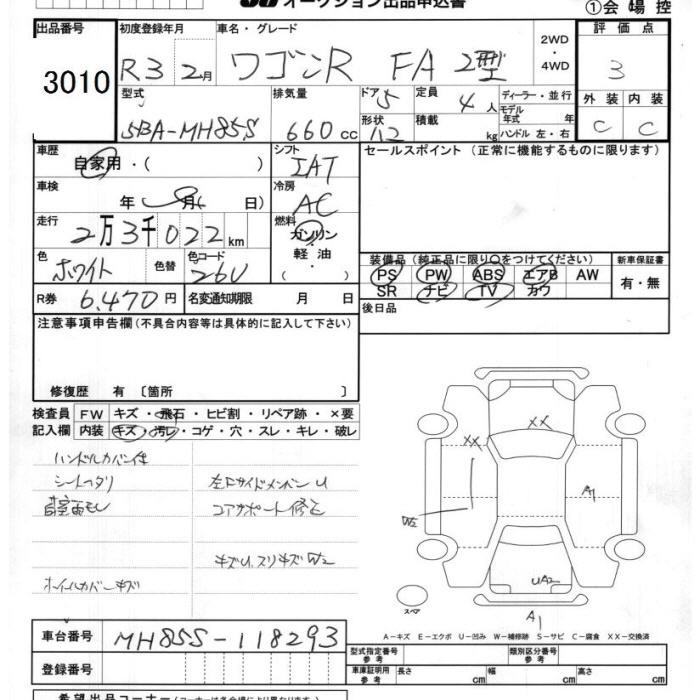 オークション出品申込書
①会 場 控
出品番号 初度登録年月 車名・グレード 2WD ・ 4WD 評 価 点
3010 R3 2月 ワゴンR FA 2型 3
型式 排気量 ドア 定員 ディーラー・並行 外 装 内 装
5BA-MH85S 660cc 5 4人 モデル 年式 年 C C
形状 積載 kg ハンドル 左・右
車歴 シフト セールスポイント (正常に機能するものに限ります)
自家用・( ) IAT
車検 冷房
年 月( 日) AC
走行 燃料
2万3千022km ガソリン ・ 軽油 ・ ( )
色 色替 色コード 装備品(純正品に限り○をつけてください) 新車保証書
ホワイト 26U PS PW ABS エアB AW 有・無
SR ナビ TV カワ
R券 6,470円 名変通知期限 月 日 後日品
注意事項申告欄(不具合内容等は具体的に記入して下さい)
修復歴 有 〔箇所 〕
検査員 FW キズ・飛石・ヒビ割・リペア跡・×要
記入欄 内装 キズ・汚レ・コゲ・穴・スレ・キレ・破レ
ハンドルカバー付
シートヘタリ 左Fサイドメンバー U
コアサポート修正
キズU、スリキズW2
ホイールカバーキズ
XX
XX
W2
A1
UA2
A1
スペア
A-キズ E-エクボ U-凹み W-補修跡 S-サビ C-腐食 XX-交換済
車台番号 MH85S-118293
型式指定番号 参考 類別区分番号 参考
登録番号 車庫証明用 参考 長さ cm 幅 cm 高さ cm
希望出品コーナー(コーナーは会場により異なります)